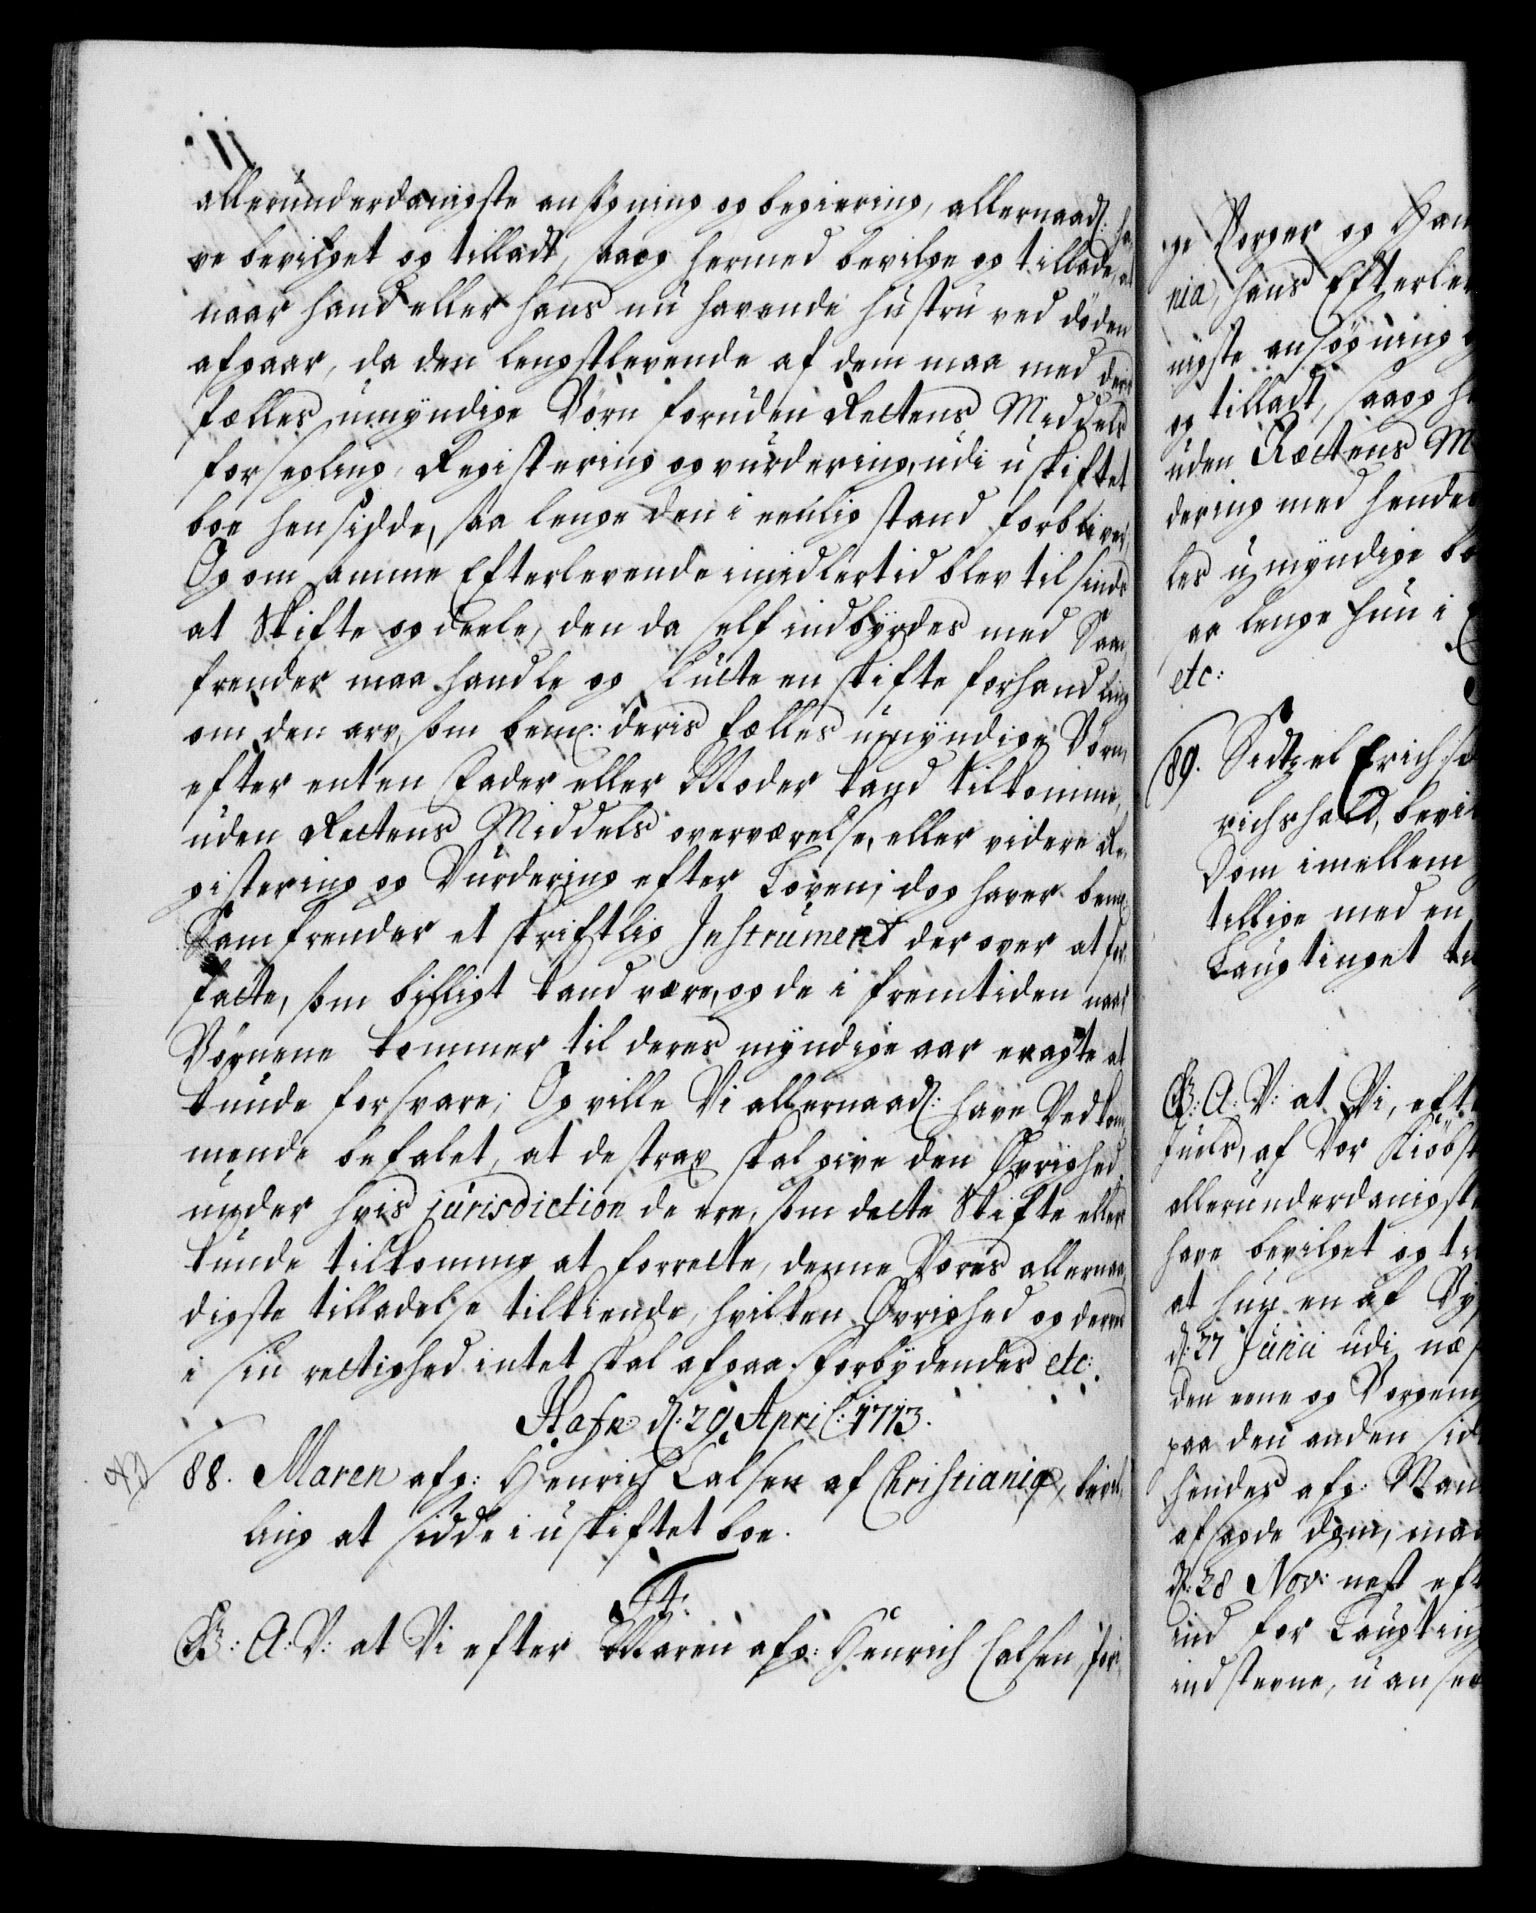 allerunderdanigste ansøgning og begiering, allernaadſ: ha,
ve bevilget og tilladt, saa og hermed bevilge og tillade, at
naar hand eller hans nu havende hustru ved döden
afgaar, da den lengstlevende af dem maa med deris
fælles umÿndige Börn foruden Rettens Middels
forsegling, Registering og vurdering, udi u skiftet
boe hensidde, saa lenge den i eenlig stand forbliver,
Og om samme Efterlevende imidlertid blev til sinds
at Skifte og deele, den da self indbÿrdes med Sam,
frender maa handle og slutte en skifte forhandling
om den arv, som bemt: deris fælles umÿndige Börn,
efter enten Fader eller Moder kand tilkomme,
uden Rettens Middels overværelse, eller videre Re,
gistering og Vurdering efter Loven; dog haver bemt:
Samfrender et skriftlig Instrument der over at for
fatte, som billigt kand være, og de i fremtiden naar
Börnene kommer til deres mÿndige aar eragte at
kunde forsvare; Og ville Vi allernaadſ: have Vedkom,
mende befalet, at de strax skal give den Øvrighed,
under hvis jurisdiction de ere, som dette Skifte ellers
kunde tilkomme at forrette, denne Vores allernaa,
digste tilladelse tilkiende, hvilken Øvrighed og derved
i sin rettighed intet skal afgaa. Forbÿdendes etc:
Hafn: d: 29 April: 1713.
88. Maren afg: Henrich Calsen af Christiania, bevil,
ling at sidde i u skiftet boe.
F4:
G: A: V: at Vi efter Maren afg: Henrich Calsen, for,
ge Borger og Han
nia, hans Efterlev
nigste ansögning
og tilladt, saa og h
uden Rettens M
dering med hendes
les umÿndige bö
aa lenge hun i
etc:
89. Sidtzel Erichs
richshald, bevil
Dom imellem
tillige med en
Laugtinget
G: A: V: at Vi, eft
Juels, af Vor Kiöbst
allerunderdanigst
have bevilget og ti
at hun en af Bÿ
d: 27 Junii udi næ
den eene og Borgem
paa den anden sid
hendes afg: Man
afsagde dom, maa
d: 28 Nov: nest eft
ind for Laugting
indstevne, u anse